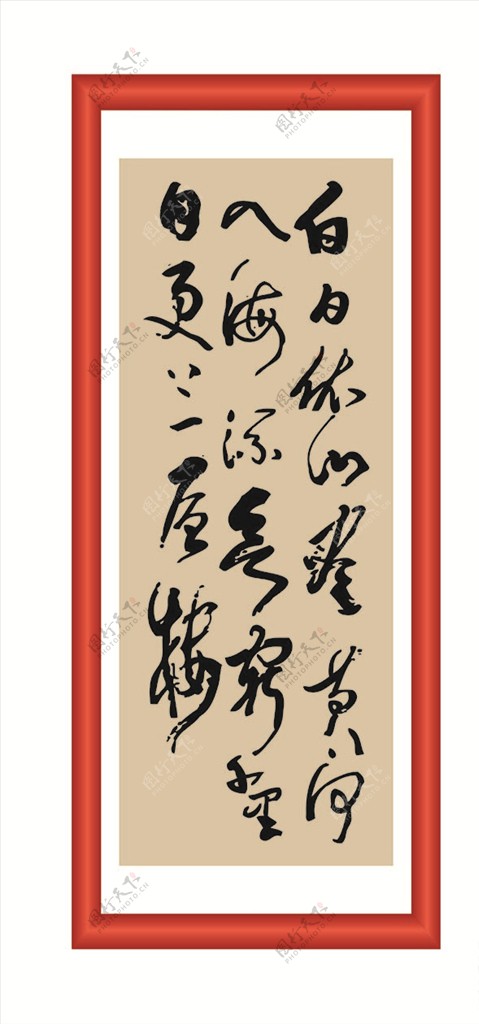 白日依山盡黄河
入海流欲窮千里
目更上一層樓
图行天下
PHOTOPHOTO.CN